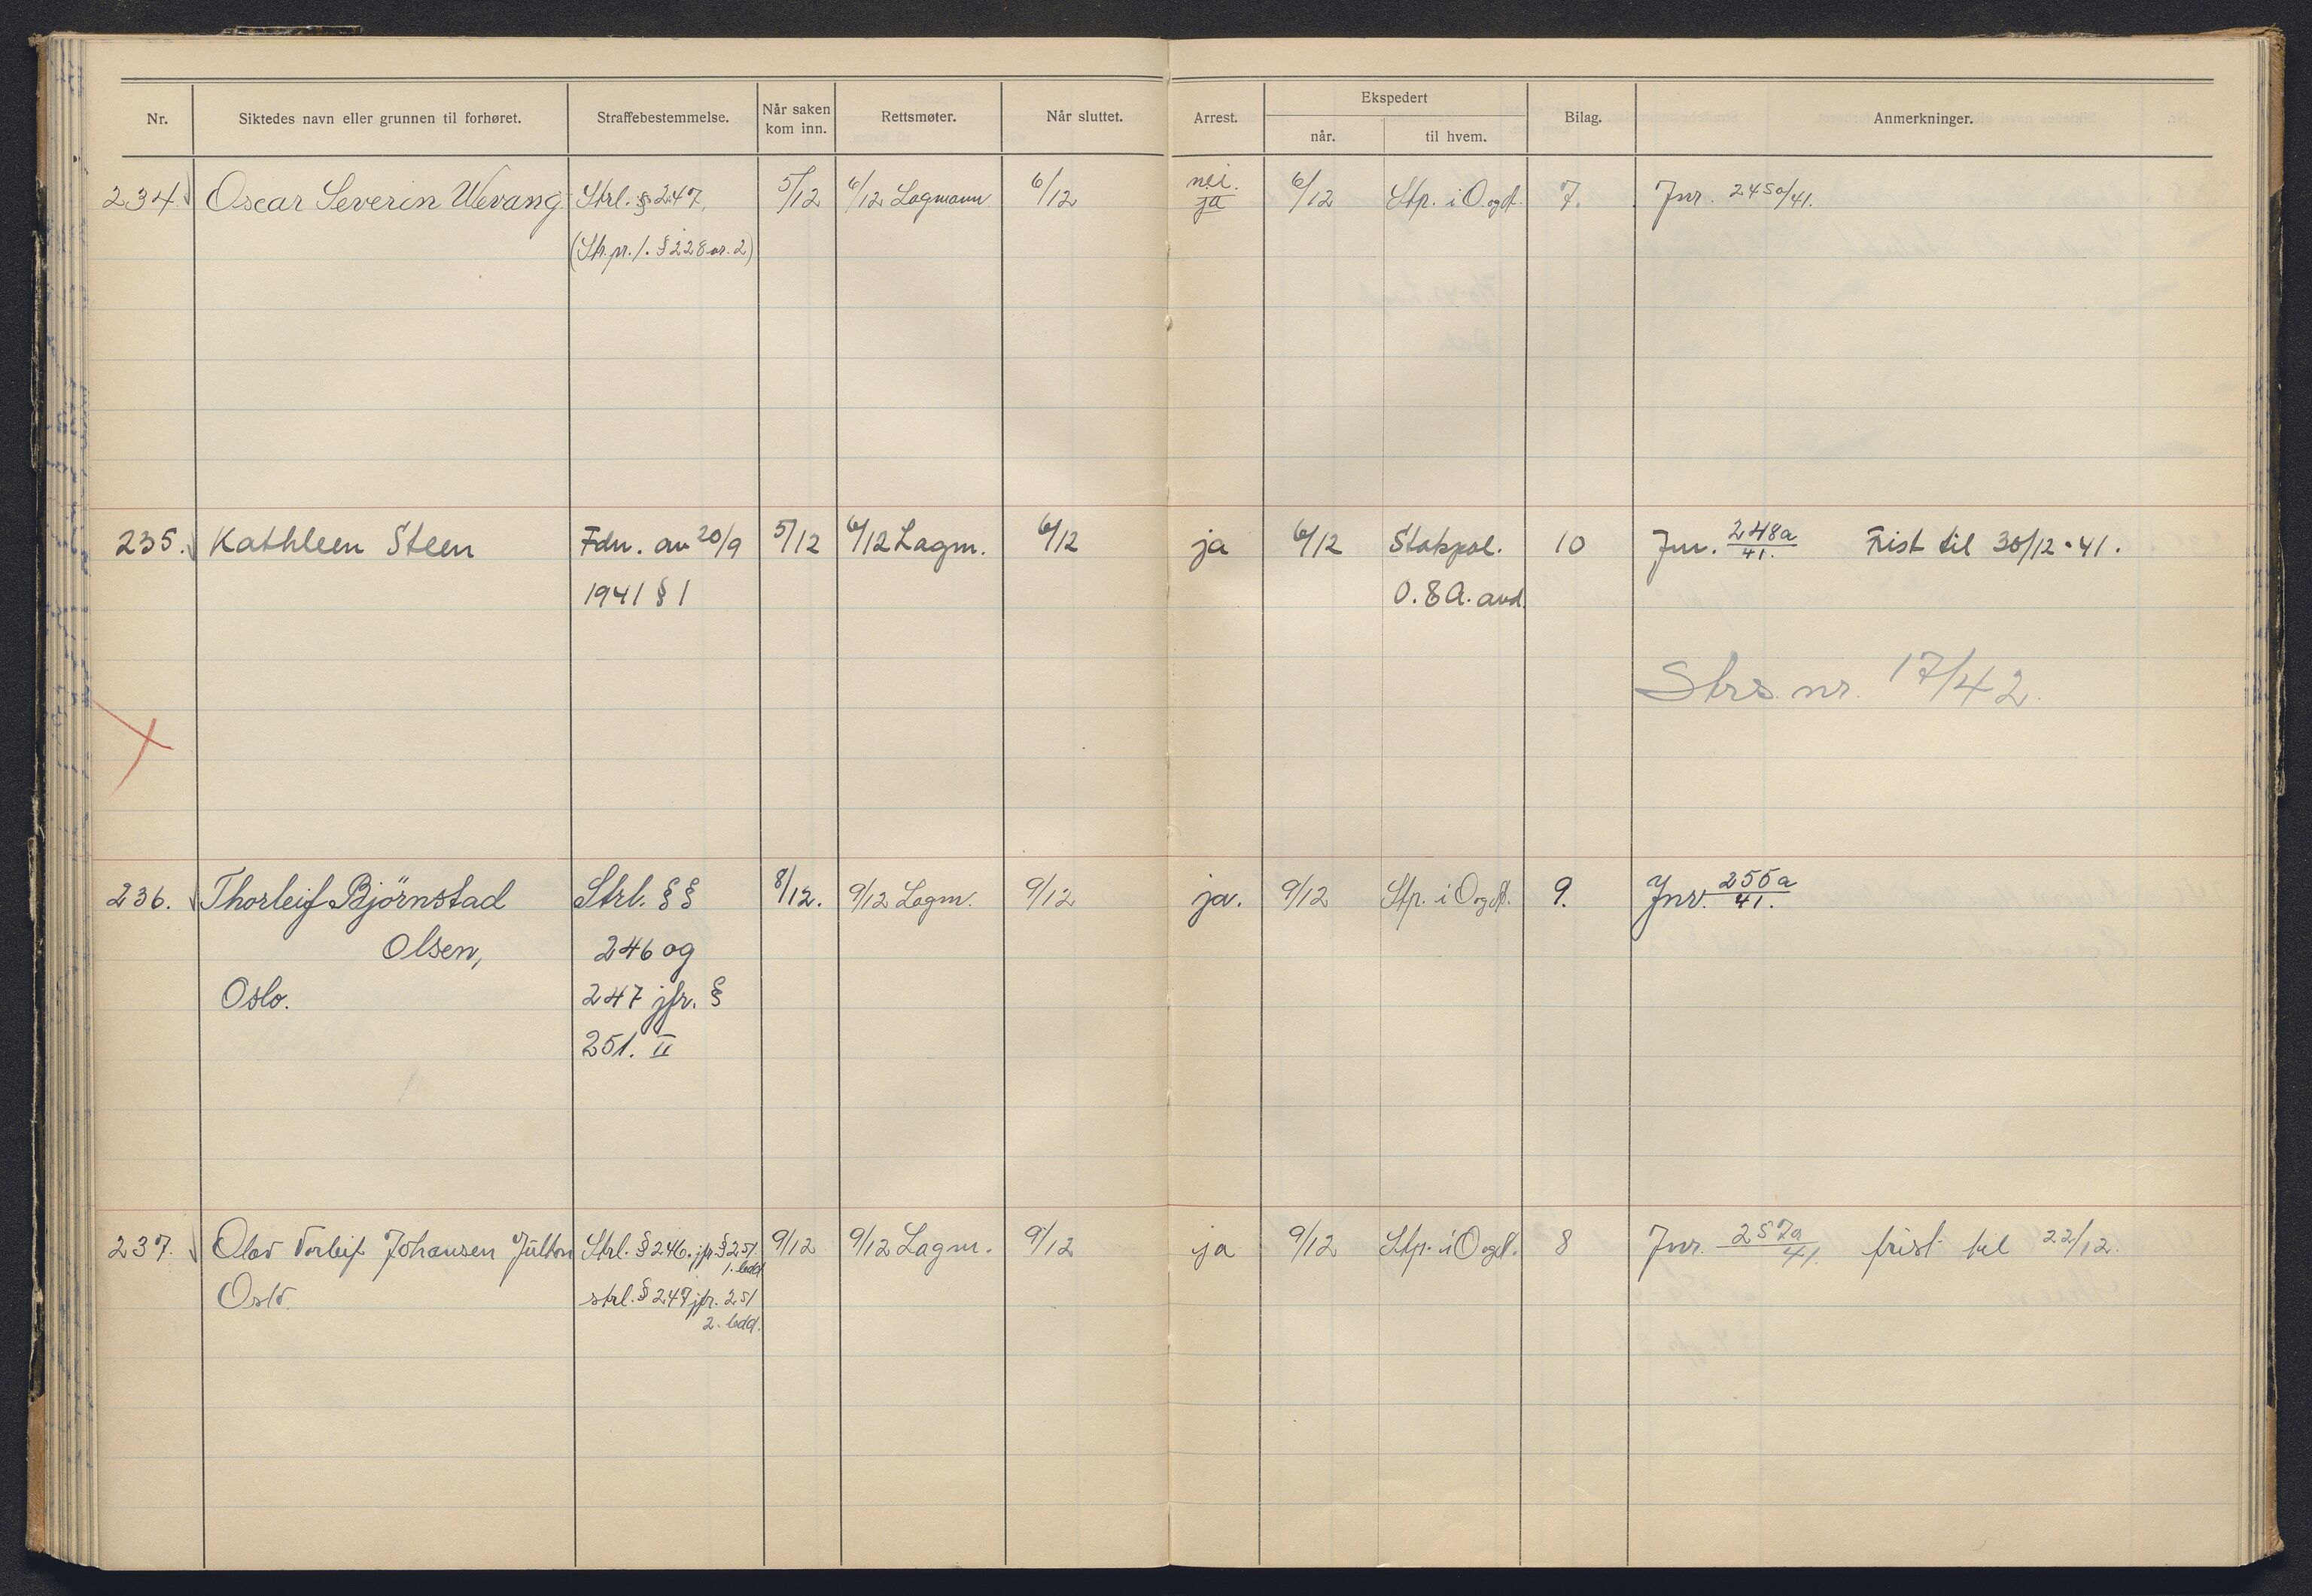 Nr. Siktedes navn eller grunnen til forhøret. Straffebestemmelse. Når saken kom inn. Rettsmøter. Når sluttet. Arrest. Ekspedert når. til hvem. Bilag. Anmerkninger.
234. Oscar Severin Wevang Strl. § 247, 5/12 6/12 Lagmann 6/12 nei. ja 6/12 Stp. i O. og A. 7. Jnr. 245a/41.
(Str.pr.l. § 228 nr. 2)
235. Kathleen Steen Fdn. av 20/9 5/12 6/12 Lagm. 6/12 ja 6/12 Statspol. 10 Jnr. 248a/41. Frist til 30/12-41.
1941 § 1 O. & A. avd.
Strs. nr. 17/42.
236. Thorleif Björnstad Strl. §§ 8/12. 9/12 Lagm. 9/12 ja. 9/12 Stp. i O og A. 9. Jnr. 255a/41.
Olsen, 246 og
Oslo. 247 jfr. §
251. II
237. Olav Torleif Johansen Strl. § 246. jfr. § 251 1. ledd 9/12 9/12 Lagm. 9/12 ja 9/12 Stp. i O og A. 8 Jnr. 257a/41. frist til 22/12.
Oslo. strl. § 247 jfr. 251
2. ledd.